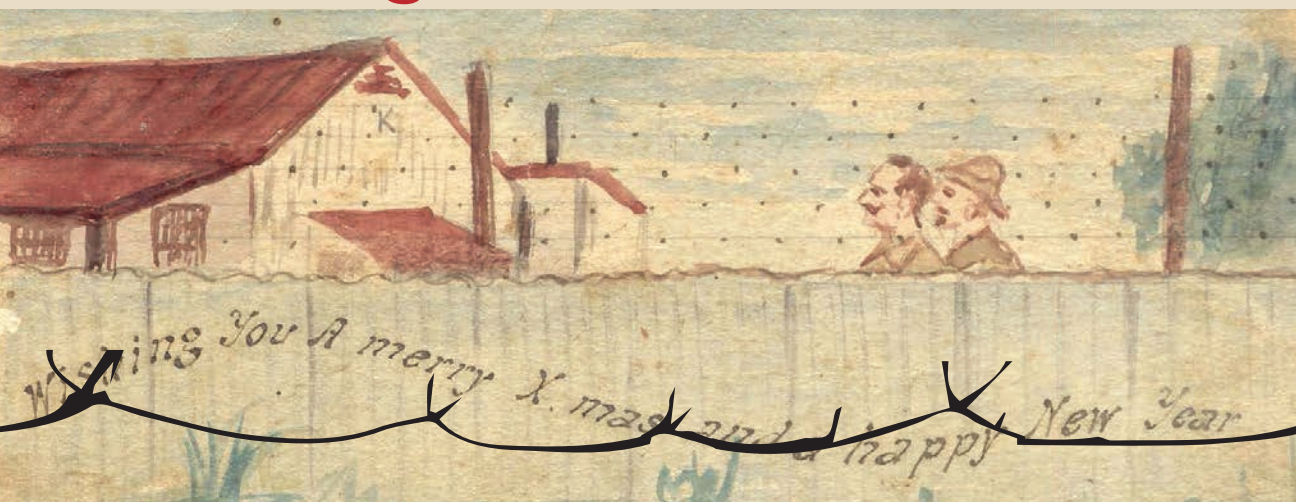 K
Wishing You A merry X. mas and a happy New Year